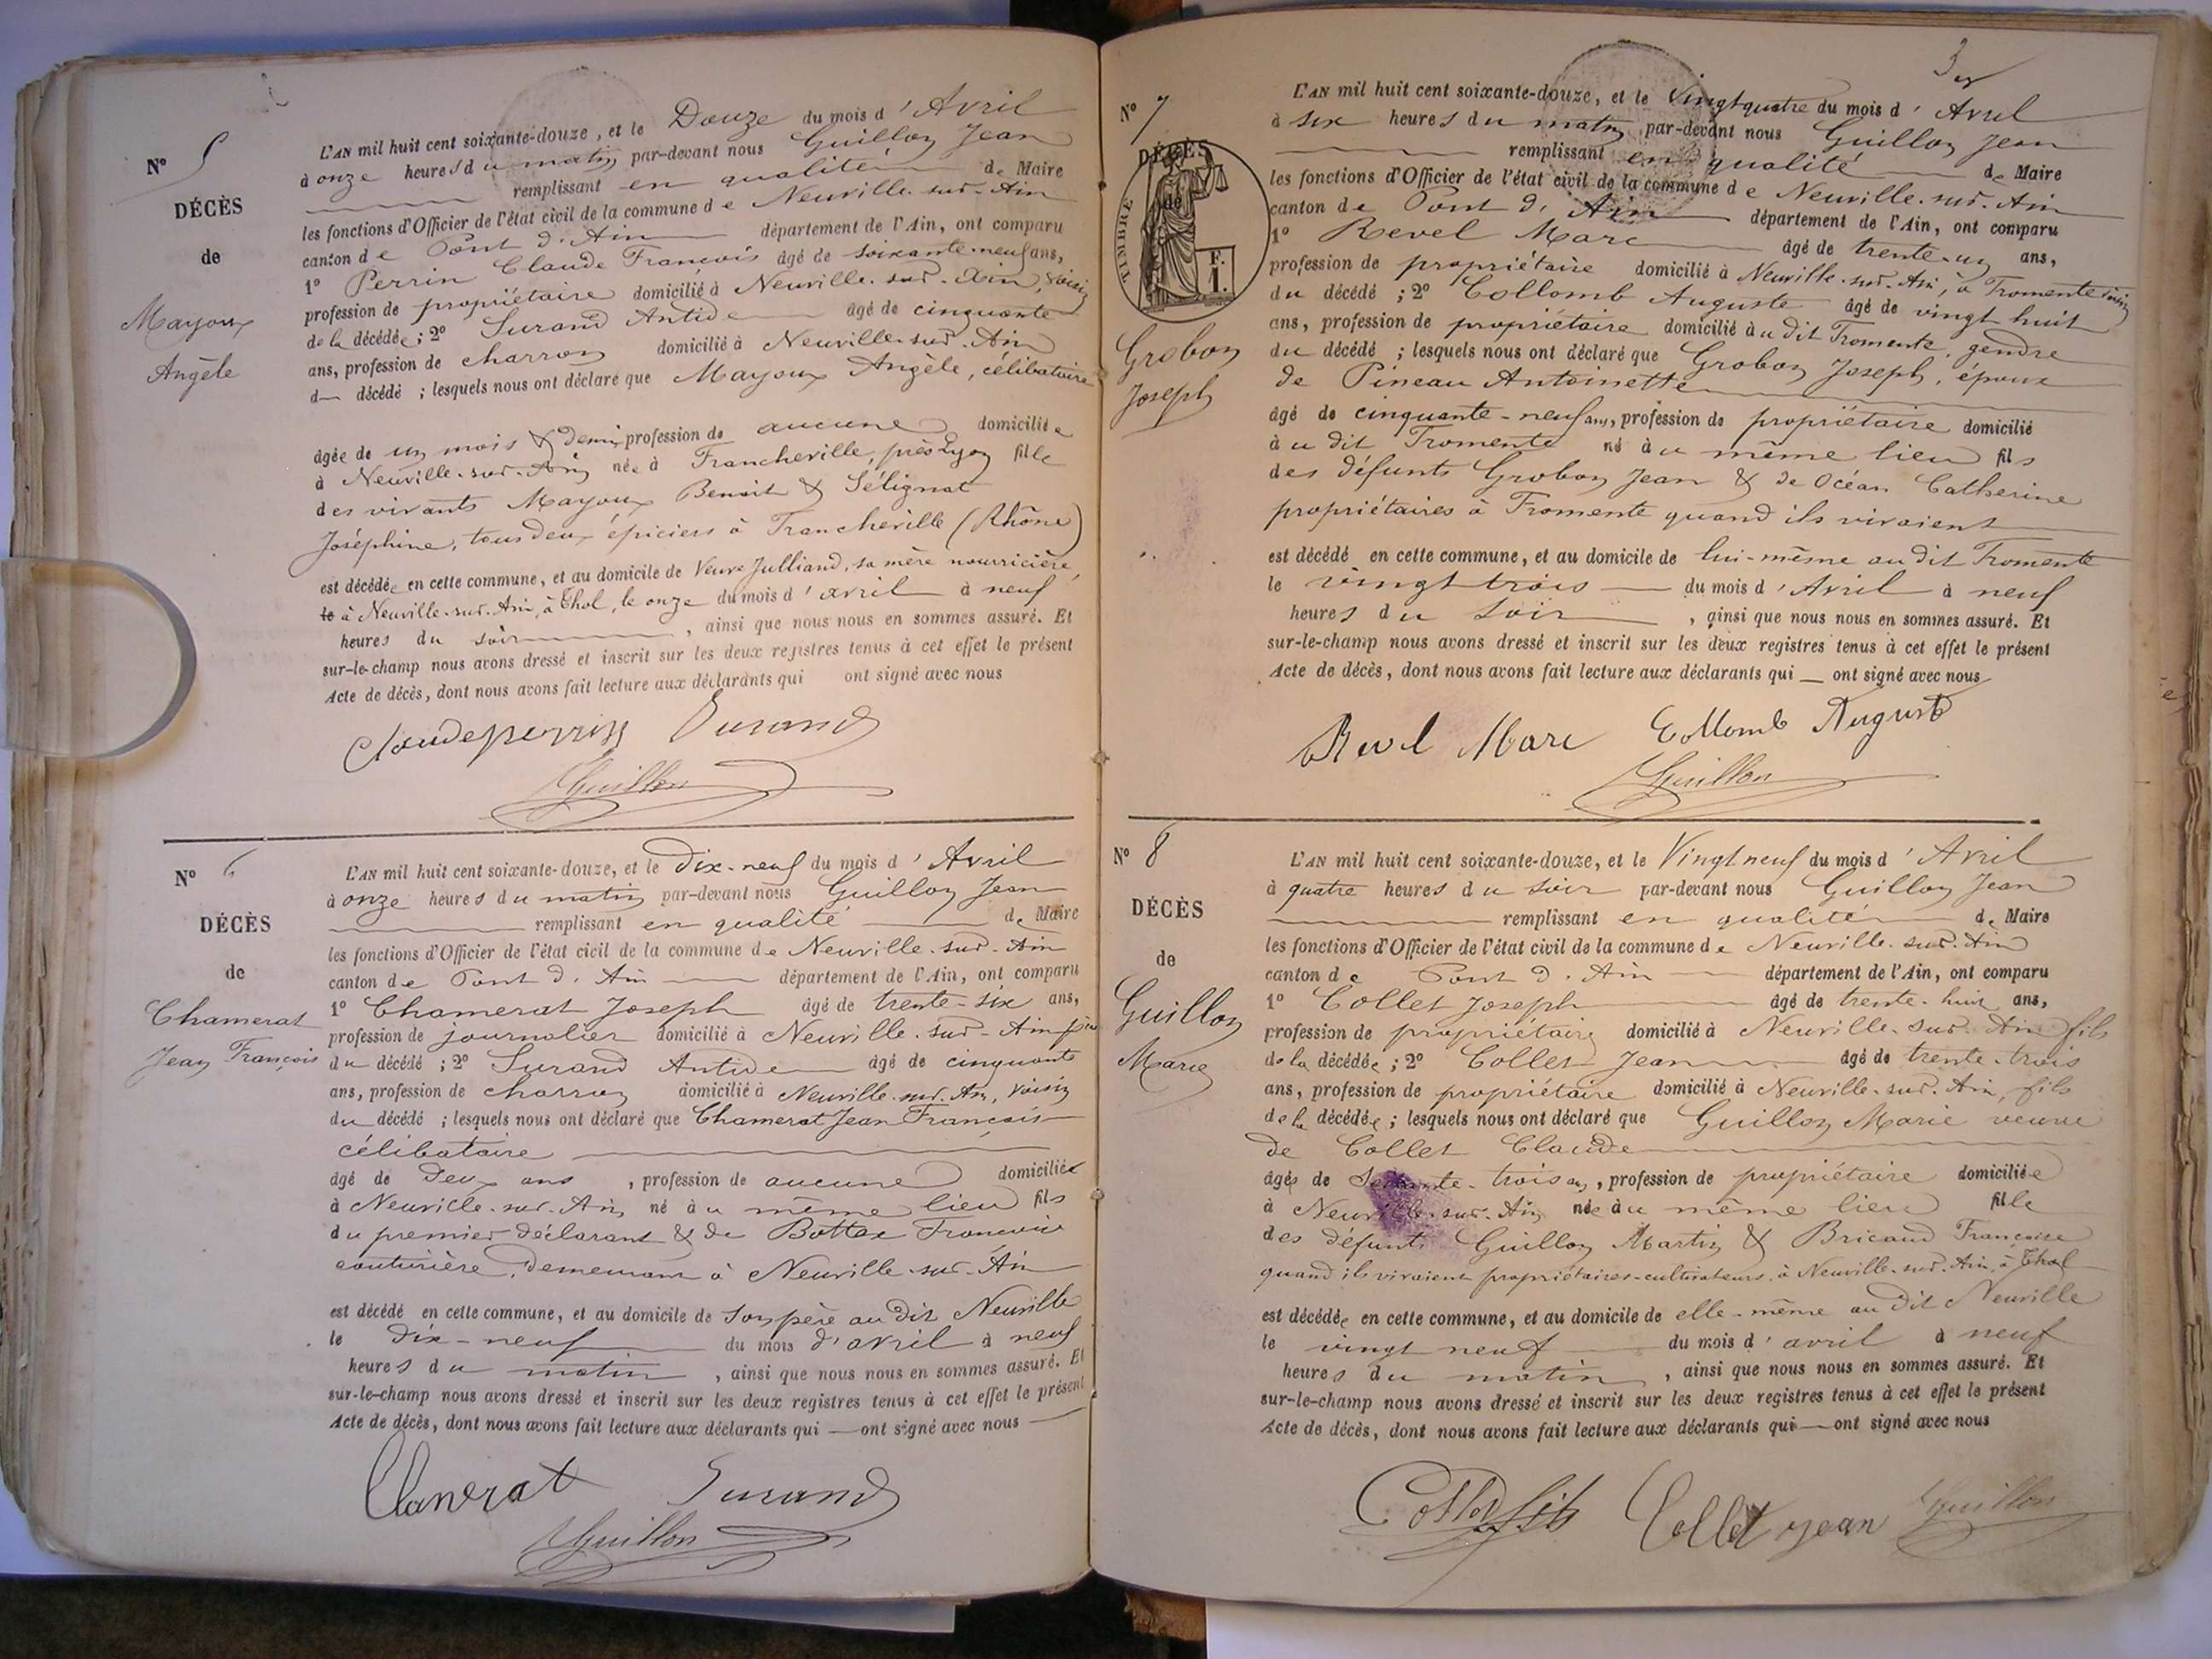 Nº 5
DÉCÈS
de
Mayoux
Angèle
L'AN mil huit cent soixante-douze, et le Douze du mois d'Avril
à onze heures du matin par-devant nous Guillon Jean
remplissant en qualité de Maire
les fonctions d'Officier de l'état civil de la commune de Neuville-sur-Ain
canton de Pont d'Ain département de l'Ain, ont comparu
1º Perrin Claude François âgé de soixante-neuf ans,
profession de propriétaire domicilié à Neuville-sur-Ain, voisin
de la décédée ; 2º Durand Antide âgé de cinquante
ans, profession de charron domicilié à Neuville-sur-Ain
d décédé ; lesquels nous ont déclaré que Mayoux Angèle, célibataire
âgée de un mois & demi profession de aucune domiciliée
à Neuville-sur-Ain née à Francheville, près Lyon fille
des vivants Mayoux Benoit & Sélignat
Joséphine, tous deux épiciers à Francheville (Rhône)
est décédée en cette commune, et au domicile de Veuve Julliand, sa mère nourricière,
le à Neuville-sur-Ain, à Thol, le onze du mois d'avril à neuf
heures du soir , ainsi que nous nous en sommes assuré. Et
sur-le-champ nous avons dressé et inscrit sur les deux registres tenus à cet effet le présent
Acte de décès, dont nous avons fait lecture aux déclarants qui ont signé avec nous
Claude perrin Durand
Guillon
Nº 6
DÉCÈS
de
Chamerat
Jean François
L'AN mil huit cent soixante-douze, et le Dix-neuf du mois d'Avril
à onze heures du matin par-devant nous Guillon Jean
remplissant en qualité de Maire
les fonctions d'Officier de l'état civil de la commune de Neuville-sur-Ain
canton de Pont d'Ain département de l'Ain, ont comparu
1º Chamerat Joseph âgé de trente-six ans,
profession de journalier domicilié à Neuville-sur-Ain père
du décédé ; 2º Durand Antide âgé de cinquante
ans, profession de charron domicilié à Neuville-sur-Ain, voisin
du décédé ; lesquels nous ont déclaré que Chamerat Jean François
célibataire
âgé de Deux ans , profession de aucune domicilié
à Neuville-sur-Ain né au même lieu fils
du premier déclarant & de Bottex Françoise
couturière, demeurant à Neuville-sur-Ain
est décédé en cette commune, et au domicile de son père au dit Neuville
le dix-neuf du mois d'avril à neuf
heures du matin , ainsi que nous nous en sommes assuré. Et
sur-le-champ nous avons dressé et inscrit sur les deux registres tenus à cet effet le présent
Acte de décès, dont nous avons fait lecture aux déclarants qui ont signé avec nous
Chamerat Durand
Guillon
Nº 7
DÉCÈS
de
TIMBRE
F.
1.
Grobon
Joseph
L'AN mil huit cent soixante-douze, et le Vingt quatre du mois d'Avril
à six heures du matin par-devant nous Guillon Jean
remplissant en qualité de Maire
les fonctions d'Officier de l'état civil de la commune de Neuville-sur-Ain
canton de Pont d'Ain département de l'Ain, ont comparu
1º Revel Marc âgé de trente-un ans,
profession de propriétaire domicilié à Neuville-sur-Ain, à Fromente voisin
du décédé ; 2º Collomb Auguste âgé de vingt huit
ans, profession de propriétaire domicilié au dit Fromente, gendre
du décédé ; lesquels nous ont déclaré que Grobon Joseph, époux
de Pineau Antoinette
âgé de cinquante-neuf ans, profession de propriétaire domicilié
à u dit Fromente né à u même lieu fils
des défunts Grobon Jean & de Océan Catherine
propriétaires à Fromente quand ils vivaient
est décédé en cette commune, et au domicile de lui-même au dit Fromente
le vingt trois du mois d'Avril à neuf
heures du soir , ainsi que nous nous en sommes assuré. Et
sur-le-champ nous avons dressé et inscrit sur les deux registres tenus à cet effet le présent
Acte de décès, dont nous avons fait lecture aux déclarants qui ont signé avec nous
Revel Marc Collomb Auguste
Guillon
Nº 8
DÉCÈS
de
Guillon
Marie
L'AN mil huit cent soixante-douze, et le Vingt neuf du mois d'Avril
à quatre heures du soir par-devant nous Guillon Jean
remplissant en qualité de Maire
les fonctions d'Officier de l'état civil de la commune de Neuville-sur-Ain
canton de Pont d'Ain département de l'Ain, ont comparu
1º Collet Joseph âgé de trente-huit ans,
profession de propriétaire domicilié à Neuville-sur-Ain fils
de la décédée ; 2º Collet Jean âgé de trente-trois
ans, profession de propriétaire domicilié à Neuville-sur-Ain, fils
de la décédée ; lesquels nous ont déclaré que Guillon Marie veuve
de Collet Claude
âgée de trois ans, profession de propriétaire domiciliée
à Neuville-sur-Ain née au même lieu fille
des défunts Guillon Martin & Bricaud Françoise
quand ils vivaient propriétaires-cultivateurs à Neuville-sur-Ain, à Thol
est décédée en cette commune, et au domicile de elle-même au dit Neuville
le vingt neuf du mois d'avril à neuf
heures du matin , ainsi que nous nous en sommes assuré. Et
sur-le-champ nous avons dressé et inscrit sur les deux registres tenus à cet effet le présent
Acte de décès, dont nous avons fait lecture aux déclarants qui ont signé avec nous
Collet fils Collet jean Guillon